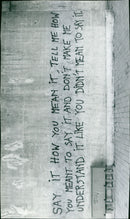 SAY IT HOW YOU MEAN IT, TELL ME HOW
YOU MEANT TO SAY IT AND DON'T MAKE ME
UNDERSTAND IT LIKE YOU DIDN'T MEAN TO SAY IT